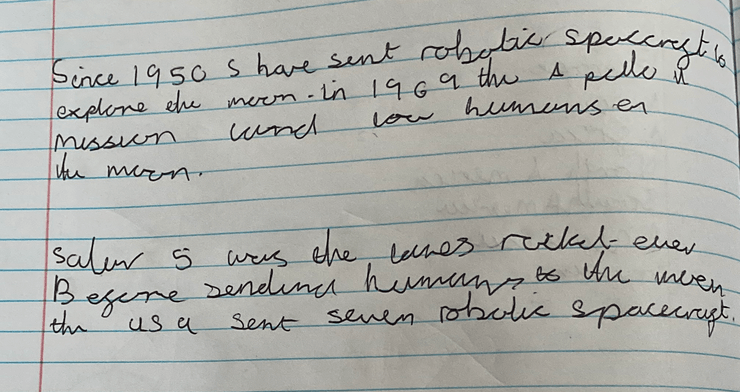 Since 1950 s have sent robotic spacecraft to
explore the moon. in 1969 the Apello 11
mission land tow humans on
the moon.
Saturn 5 was the rocket ever
Before sending humans to the moon
the usa sent seven robotic spacecraft.